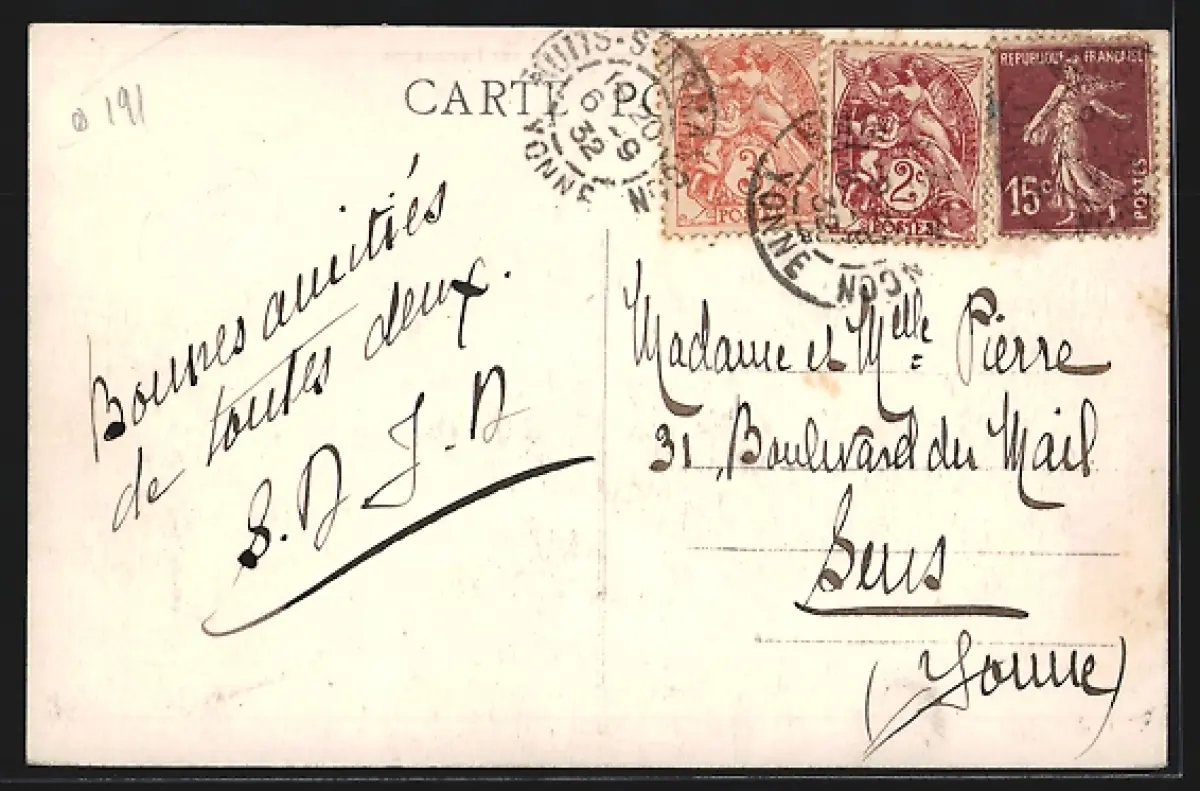 191
CARTE PO
NUITS-S
20
6-9
32
YONNE
3
POS
2
POSTES
YONNE
REPUBLIQUE FRANÇAISE
15c
POSTES
Bonnes amitiés
de toutes deux.
S. D J-D
Madame et Melle Pierre
31, Boulevard du Mail
Sens
(Yonne)